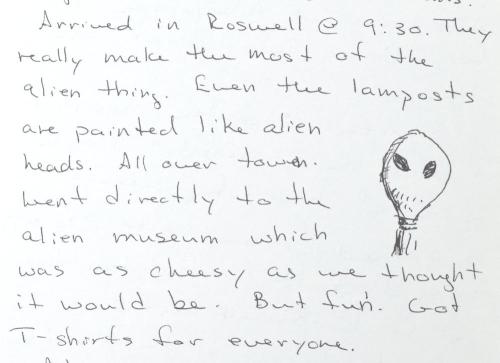 Arrived in Roswell @ 9:30. They
really make the most of the
alien thing. Even the lamposts
are painted like alien
heads. All over town.
Went directly to the
alien museum which
was as cheesy as we thought
it would be. But fun. Got
T-shirts for everyone.